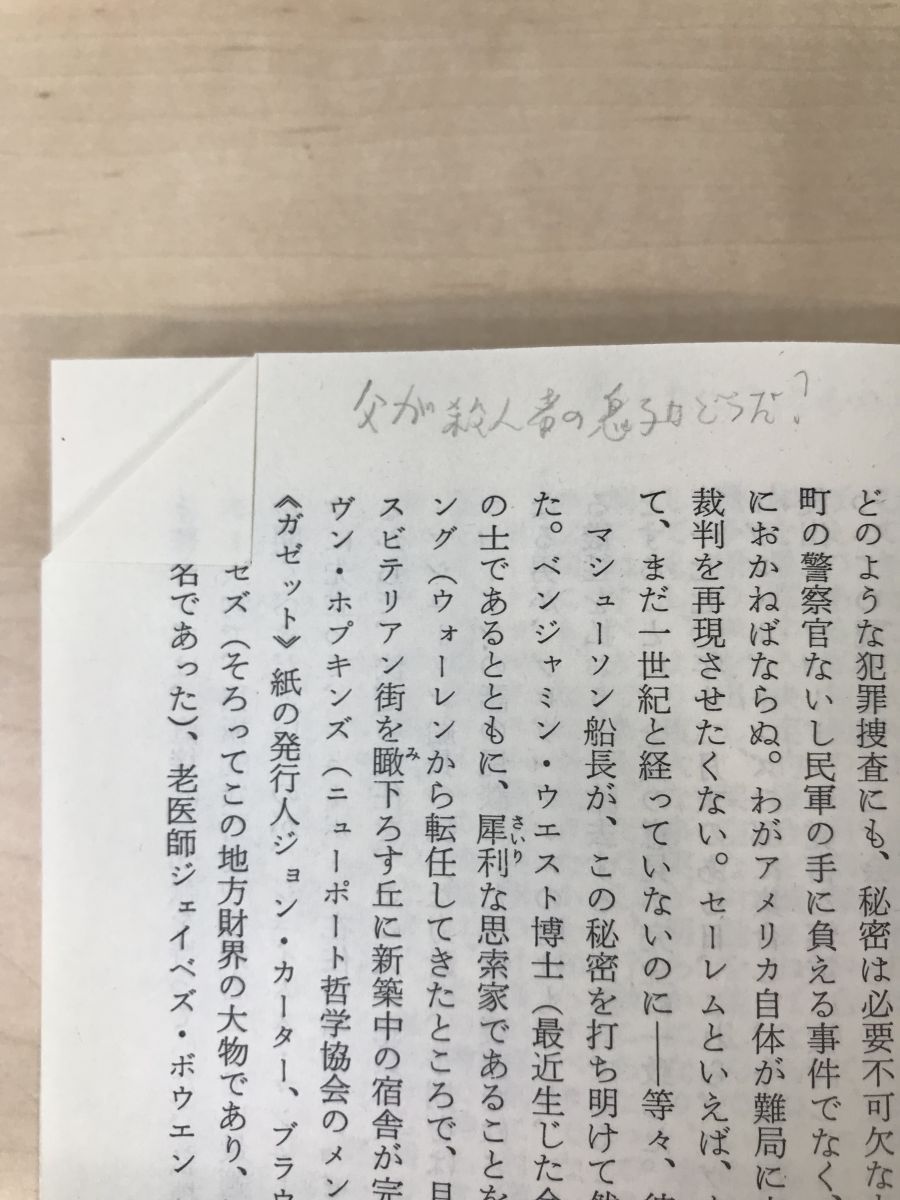 父が殺人者の息子はどうだ?
どのような犯罪捜査にも、秘密は必要不可欠な
町の警察官ないし民軍の手に負える事件でなく、
におかねばならぬ。わがアメリカ自体が難局に
裁判を再現させたくない。セーレムといえば、
て、まだ一世紀と経っていないのに――等々、彼
マシューソン船長が、この秘密を打ち明けて
た。ベンジャミン・ウエスト博士（最近生じた
の士であるとともに、犀利な思索家であることを
さいり
ング（ウォーレンから転任してきたところで、
スビテリアン街を瞰下ろす丘に新築中の宿舎が完
み
ヴン・ホプキンズ（ニューポート哲学協会のメン
《ガゼット》紙の発行人ジョン・カーター、ブラウ
ゼズ（そろってこの地方財界の大物であり、
名であった）、老医師ジェイベズ・ボウエン